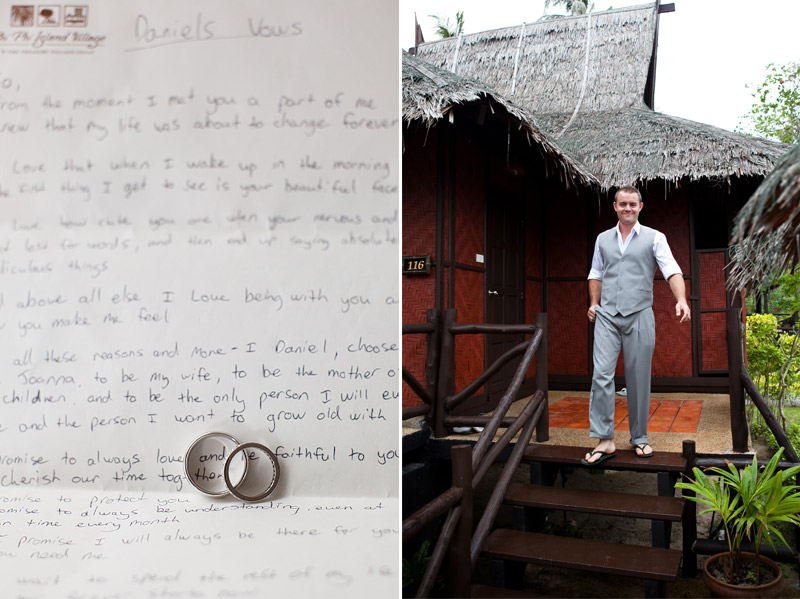 Phi Phi Island Village
Daniels Vows
Jo,
From the moment I met you a part of me
knew that my life was about to change forever
Love that when I wake up in the morning
the first thing I get to see is your beautiful face
Love how cute you when your nervous and
lost for words, and then end up saying absolute
ridiculous things
above all else I Love being with you a
you make me feel
all these reasons and more - I Daniel, choose
Joanna, to be my wife, to be the mother o
children, and to be the only person I will ev
and the person I want to grow old with
promise to always love and be faithful to you
cherish our time together
promise to protect you
promise to always be understanding. even at
time every month
I promise I will always be there for you
you need me
wait to spend the rest of my
116